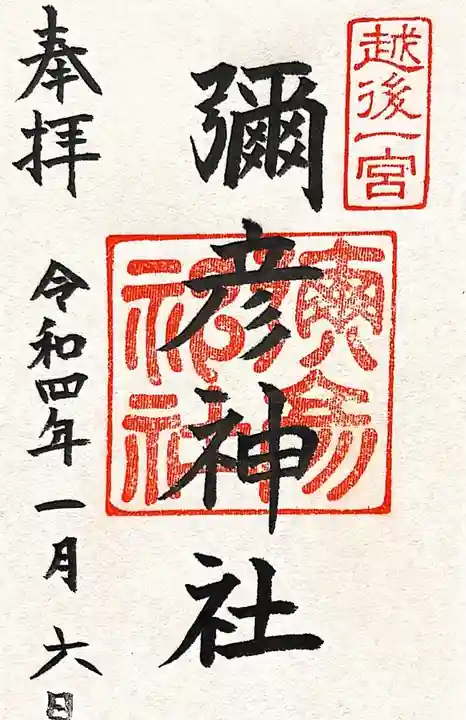 越後一宮
彌彦神社
奉拝
令和四年一月六日